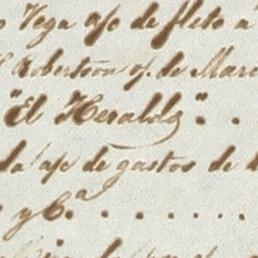 Vega a/c de flete a
Robertson of. de Marc
"El Heraldo" . .
da a/c de gastos de
y Cª . . . . . . .